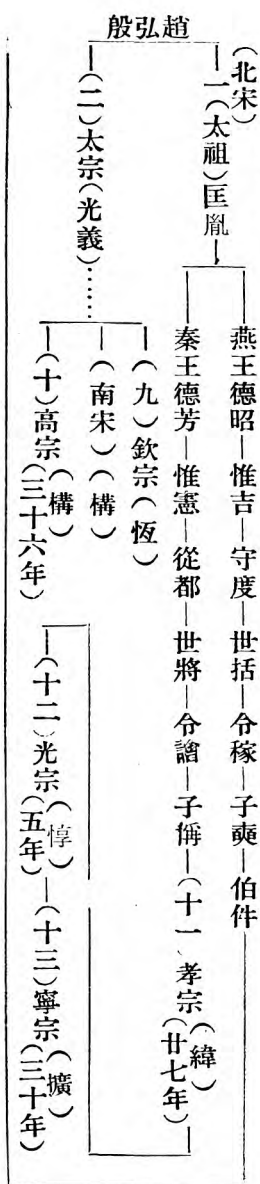 趙弘殷
（北宋）
一（太祖）匡胤
燕王德昭―惟吉―守度―世括―令稼―子奭―伯件
秦王德芳―惟憲―從郁―世將―令譮―子偁―（十一、孝宗（緯）（廿七年）
（二）太宗（光義）……
（九）欽宗（恆）
（南宋）（構）
（十）高宗（構）（三十六年）
（十二）光宗（惇）（五年）―（十三）寧宗（擴）（三十年）